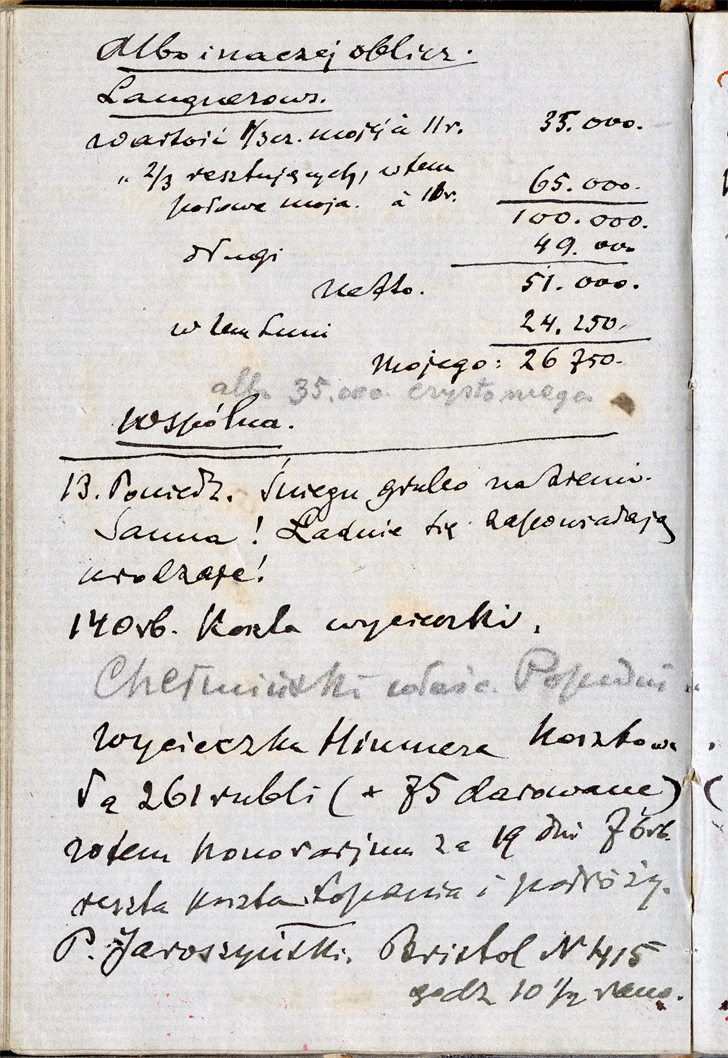 Albo inaczej oblicz.
Langnerow.
Wartość 1/3 cz. mojej à 11r. 35.000.
„ 2/3 resztujących, w tem
połowa moja. à 11r. 65.000.
100.000.
długi 49.000
netto. 51.000.
w tem Luni 24.250.
Mojego: 26750.
albo 35.000. czysto mego
Wspólna.
13. Poniedz. Śniegu grubo na ziemi.
Sanna! Ładnie się zapowiadają
urodzaje!
140rb. Koszta wycieczki.
Chełmiński właśc.
Wycieczka Himnera Kosztowa
ła 261 rubli (+ 75 darowane)
zotem honorarjum za 19 dni 76rb.
reszta koszta kopania i podróży.
P. Jaroszyński. Bristol N 415
godz 10 1/2 rano.